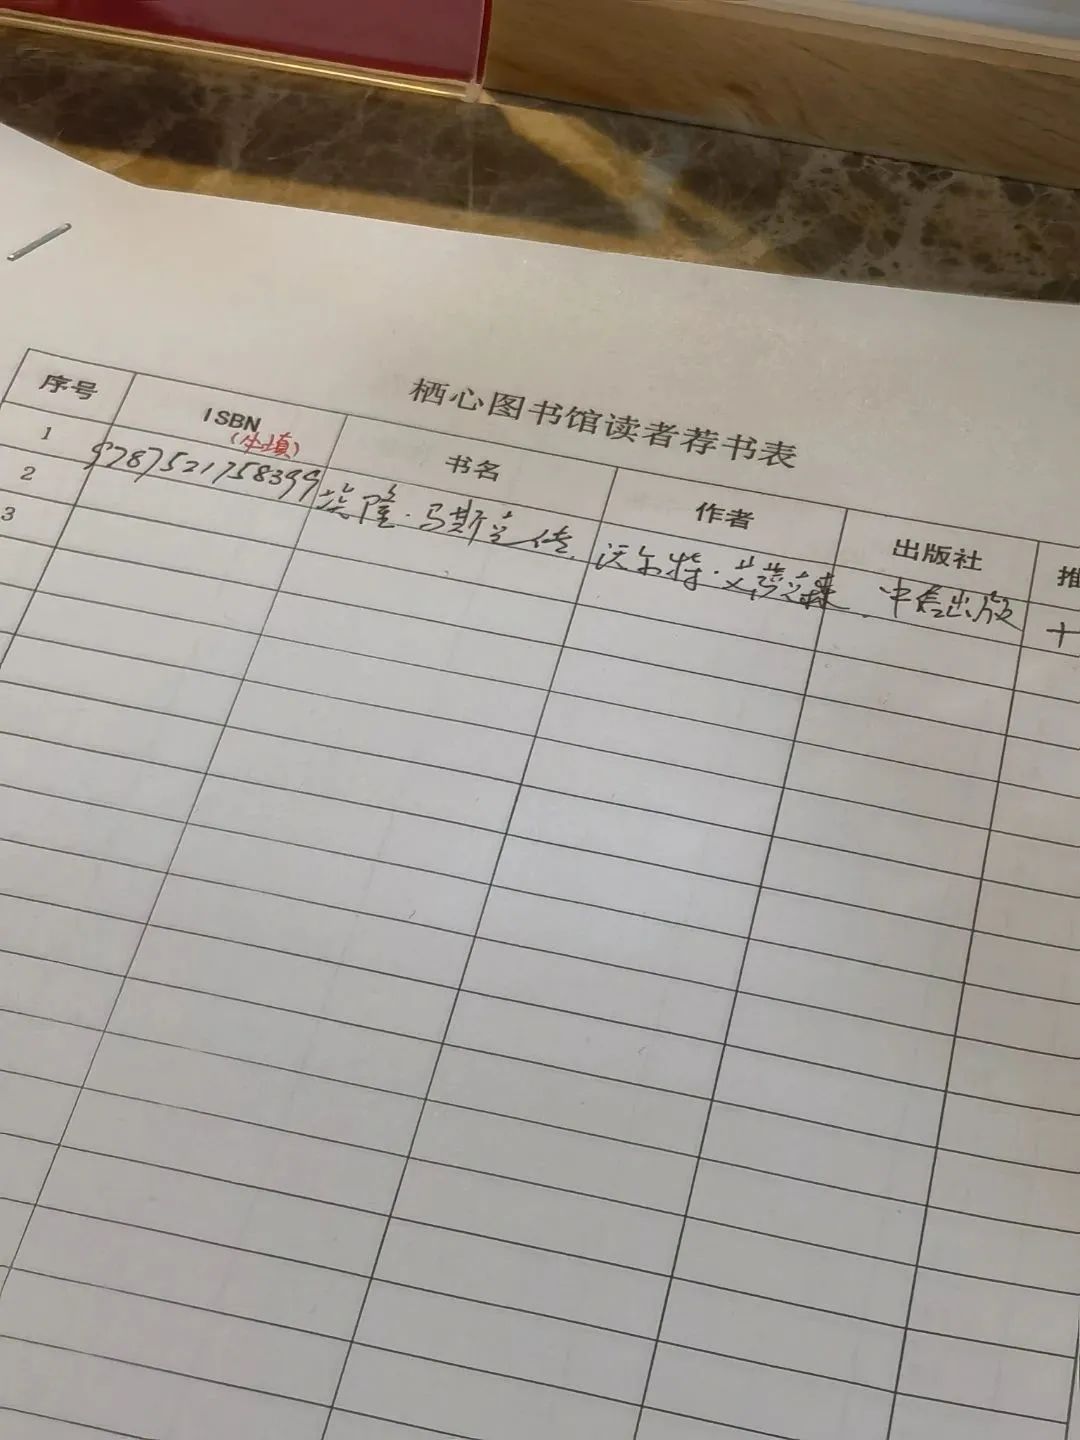 栖心图书馆读者荐书表
序号 ISBN 书名 作者 出版社 推
(必填)
1 9787521758399 埃隆·马斯克传 沃尔特·艾萨克森 中信出版
2
3